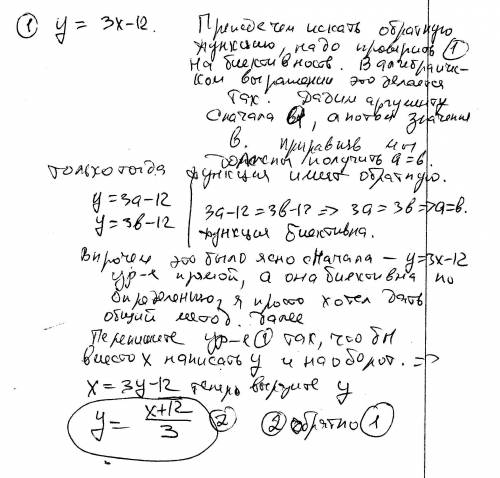 ① y = 3x-12. Прежде чем искать обратную
функцию, надо проверить ①
на биективность. В алгебраичес-
ком выражении это делается
так. Дадим аргументу
сначала а, а потом значения
в. приравняв мы
должны получить а=в.
только тогда функция имеет обратную.
y=3а-12
y=3в-12
3а-12=3в-12 => 3а=3в => а=в.
функция биективна.
Впрочем это было ясно сначала – y=3x-12
ур-е прямой, а она биективна по
определению, я просто хотел дать
общий метод. далее
Перепишите ур-е ① так, что бы
вместо x написать y и наоборот. =>
x = 3y-12 теперь выразите y
y = x+12/3 ② ② обратно ①